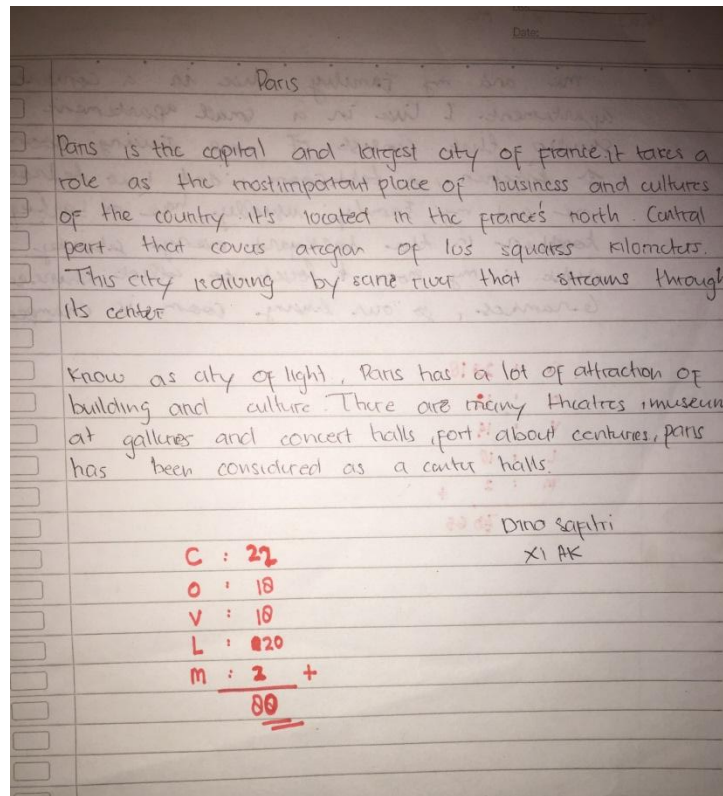 Date:
Paris
Paris is the capital and largest city of france.it takes a
role as the most important place of business and cultures
of the country. it's located in the france's north. Central
part that covers aregian of 105 squarss kilometers.
This city is diving by sane river that streams through
its center
Know as city of light, Paris has a lot of attraction of
building and culture. There are many theatres, museum
at galleries and concert halls, fort about centuries, paris
has been considered as a center halls.
Dino Safitri
XI AK
C : 22
O : 18
V : 18
L : 20
M : 2 +
80